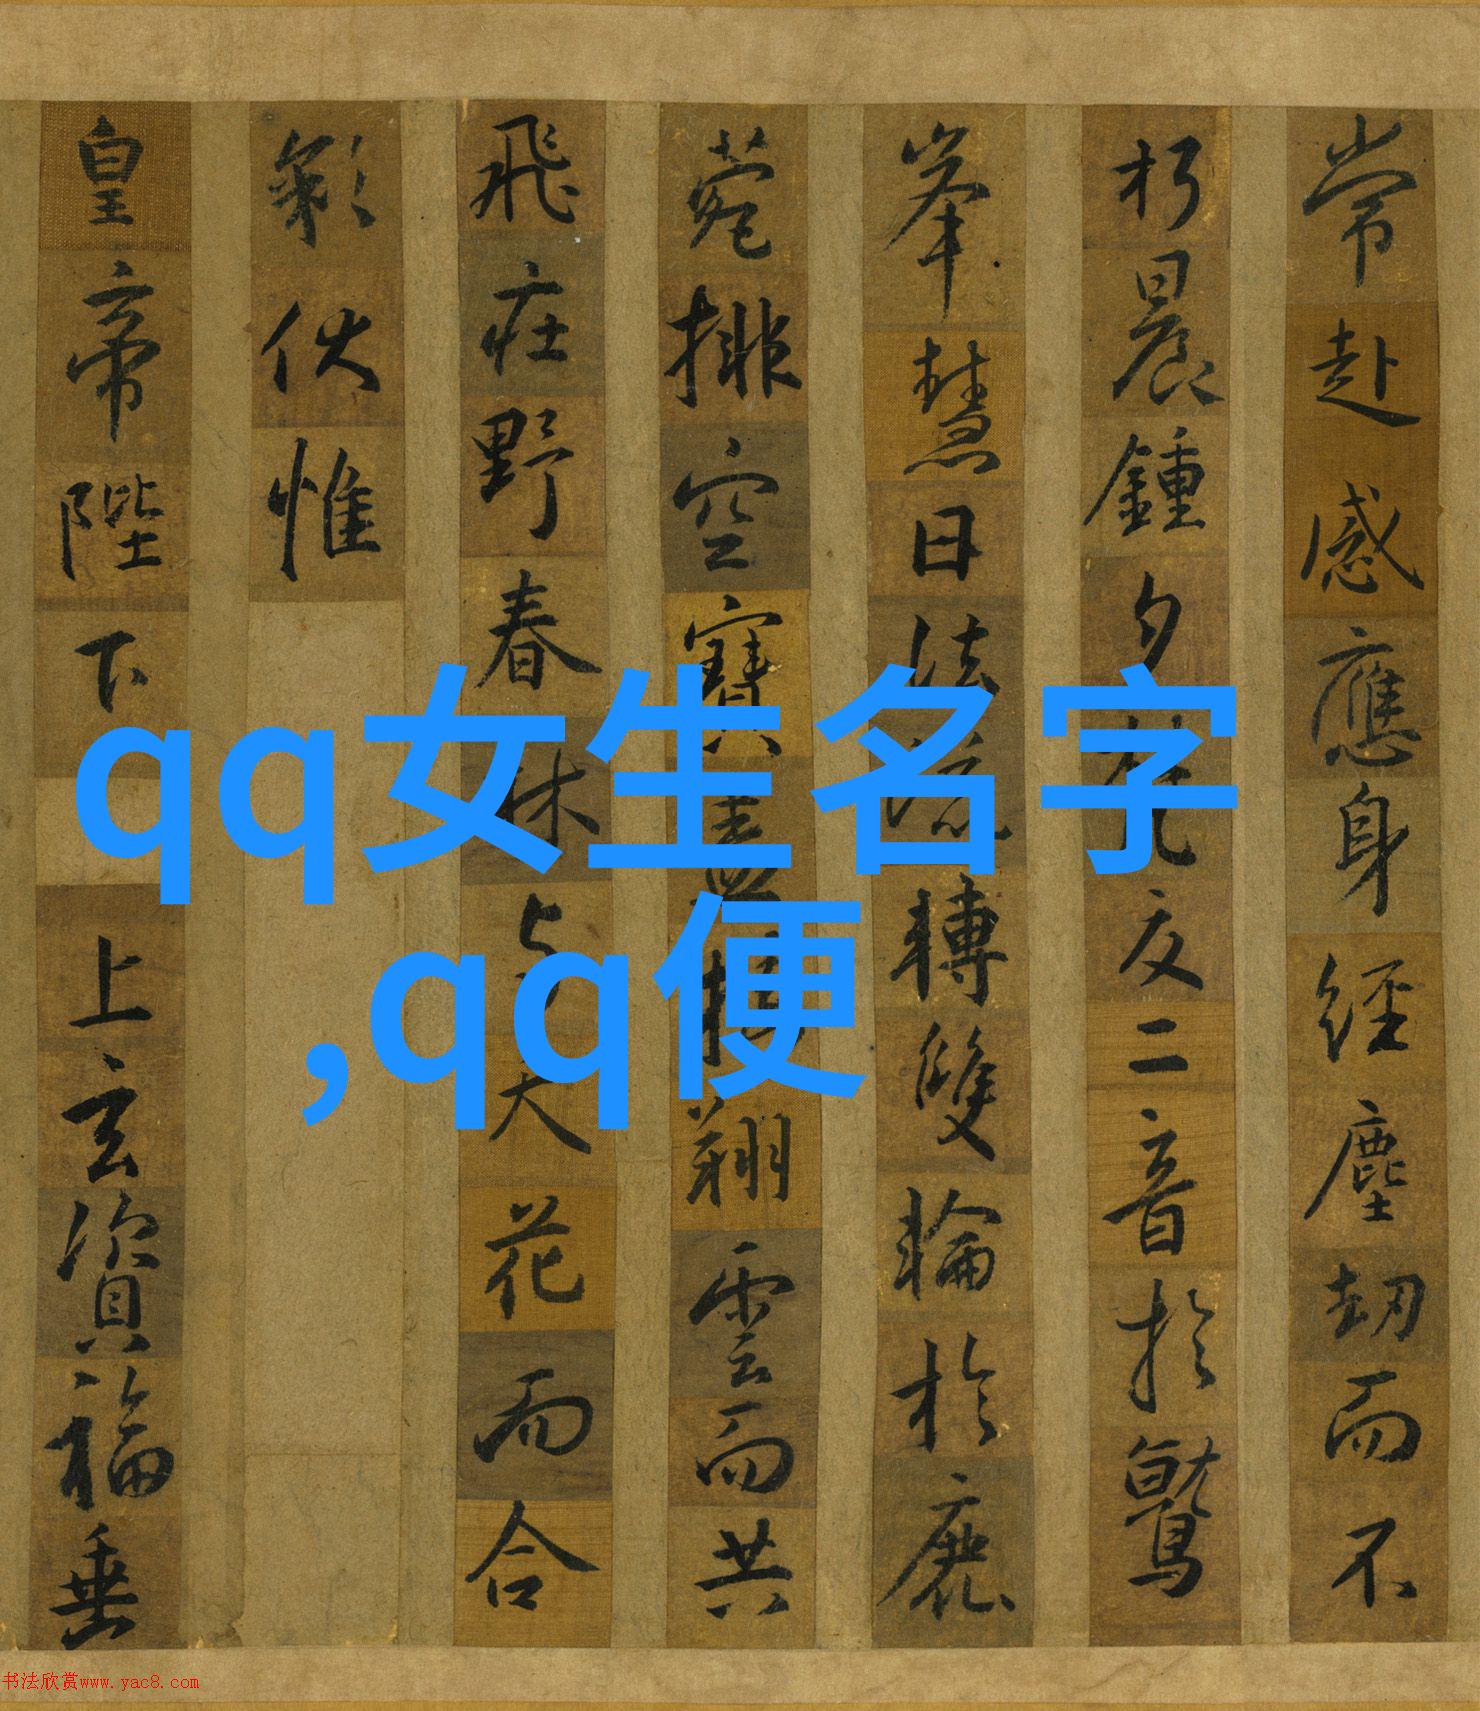 常赴感應身經塵劫而不
朽晨鍾夕梵交二音於鷲
峯慧日法流轉雙輪於鹿
菀排空寶蓋接翔雲而共
飛莊野春林与天花而合
彩伏惟
皇帝陛下上玄資福垂
qq女生名字
,qq便
书法欣赏www.yac8.com